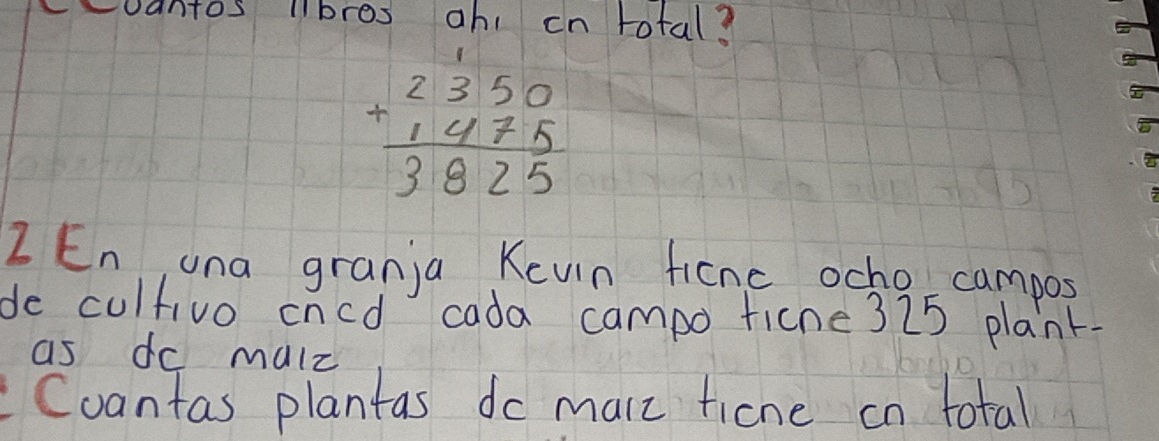 ¿Cuantos libros ahi en total?
1
2350
+ 1475
3825
2 En una granja Kevin tiene ocho campos
de cultivo encd cada campo tiene 325 plant-
as de maiz
¿Cuantas plantas de maiz tiene en total